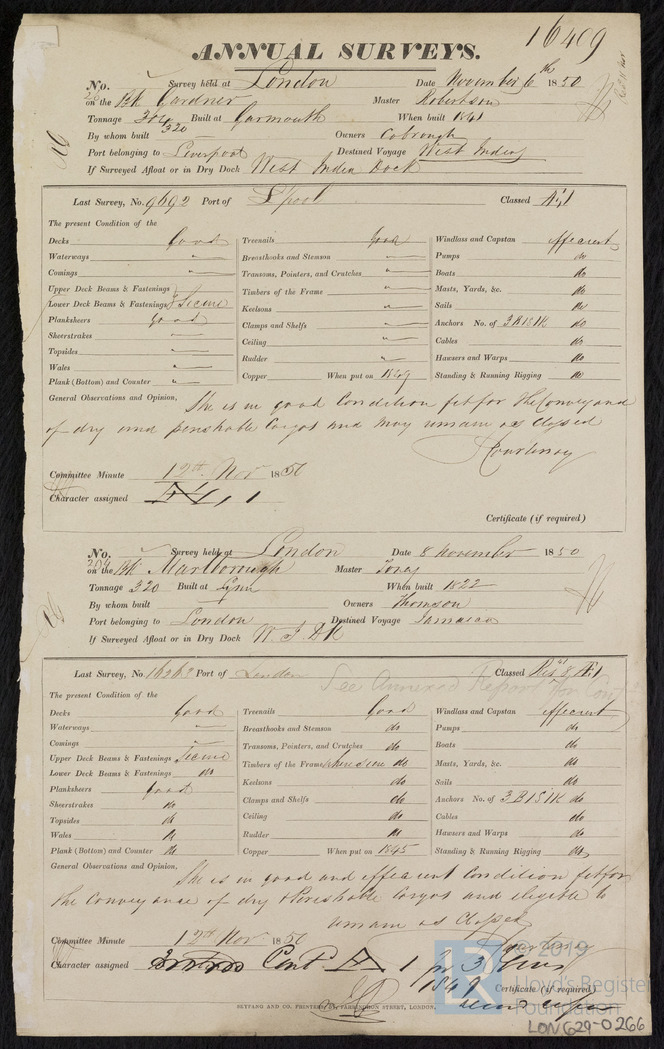 16409
ANNUAL SURVEYS.
No. Survey held at London Date November 6th 1850
on the Bk Gardner Master Robertson
Tonnage 304 320 Built at Garmouth When built 1841
By whom built Owners
Port belonging to Liverpool Destined Voyage West Indies
If Surveyed Afloat or in Dry Dock West India Dock
Last Survey, No. 9692 Port of L'pool Classed Æ 1
The present Condition of the
Decks Good Treenails good Windlass and Capstan efficient
Waterways " Breasthooks and Stemson " Pumps do
Comings " Transoms, Pointers, and Crutches " Boats do
Upper Deck Beams & Fastenings Timbers of the Frame " Masts, Yards, &c. do
Lower Deck Beams & Fastenings } Secure Keelsons " Sails do
Planksheers good Clamps and Shelfs " Anchors No. of 3B 1S 1K do
Sheerstrakes " Ceiling " Cables do
Topsides " Rudder " Hawsers and Warps do
Wales " Copper When put on 1849 Standing & Running Rigging do
Plank (Bottom) and Counter "
General Observations and Opinion, She is in good Condition fit for the Conveyance
of dry and perishable Cargos and may remain as Classed
Courtenay
Committee Minute 12th Nov 1850
Character assigned Æ 1, 1
Certificate (if required)
No. Survey held at London Date 8 November 1850
204 on the Bk Marlborough Master Jones
Tonnage 320 Built at Lynn When built 1822
By whom built Owners Thomson
Port belonging to London Destined Voyage Jamaica
If Surveyed Afloat or in Dry Dock W I Dk
Last Survey, No. 16268 Port of London Classed Æ 1
See Annexed Report for Cont
The present Condition of the
Decks Good Treenails Good Windlass and Capstan efficient
Waterways " Breasthooks and Stemson do Pumps do
Comings " Transoms, Pointers, and Crutches do Boats do
Upper Deck Beams & Fastenings Secure Timbers of the Frame where seen do Masts, Yards, &c. do
Lower Deck Beams & Fastenings do Keelsons do Sails do
Planksheers good Clamps and Shelfs do Anchors No. of 3B 1S 1K do
Sheerstrakes do Ceiling do Cables do
Topsides do Rudder do Hawsers and Warps do
Wales do Copper When put on 1845 Standing & Running Rigging do
Plank (Bottom) and Counter do
General Observations and Opinion, She is in good and efficient Condition fit for
the Conveyance of dry & Perishable Cargos and eligible to
remain as Classed
Courtenay
Committee Minute 12th Nov 1850
Character assigned Cont Æ 1 for 3 Years
1849
Certificate (if required)
SEYFANG AND CO. PRINTERS, 57, FARRINGDON STREET, LONDON.
© 2019
Lloyd's Register
Foundation
LR
LON629-0266